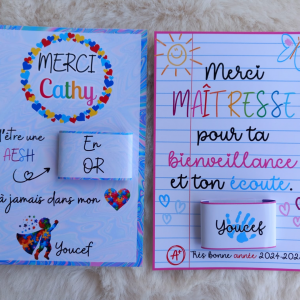 MERCI
Cathy
d'être une
AESH
En
OR
à jamais dans mon
Youcef
Merci
MAÎTRESSE
pour ta
bienveillance
et ton écoute.
Youcef
A+
Très bonne année 2024-202